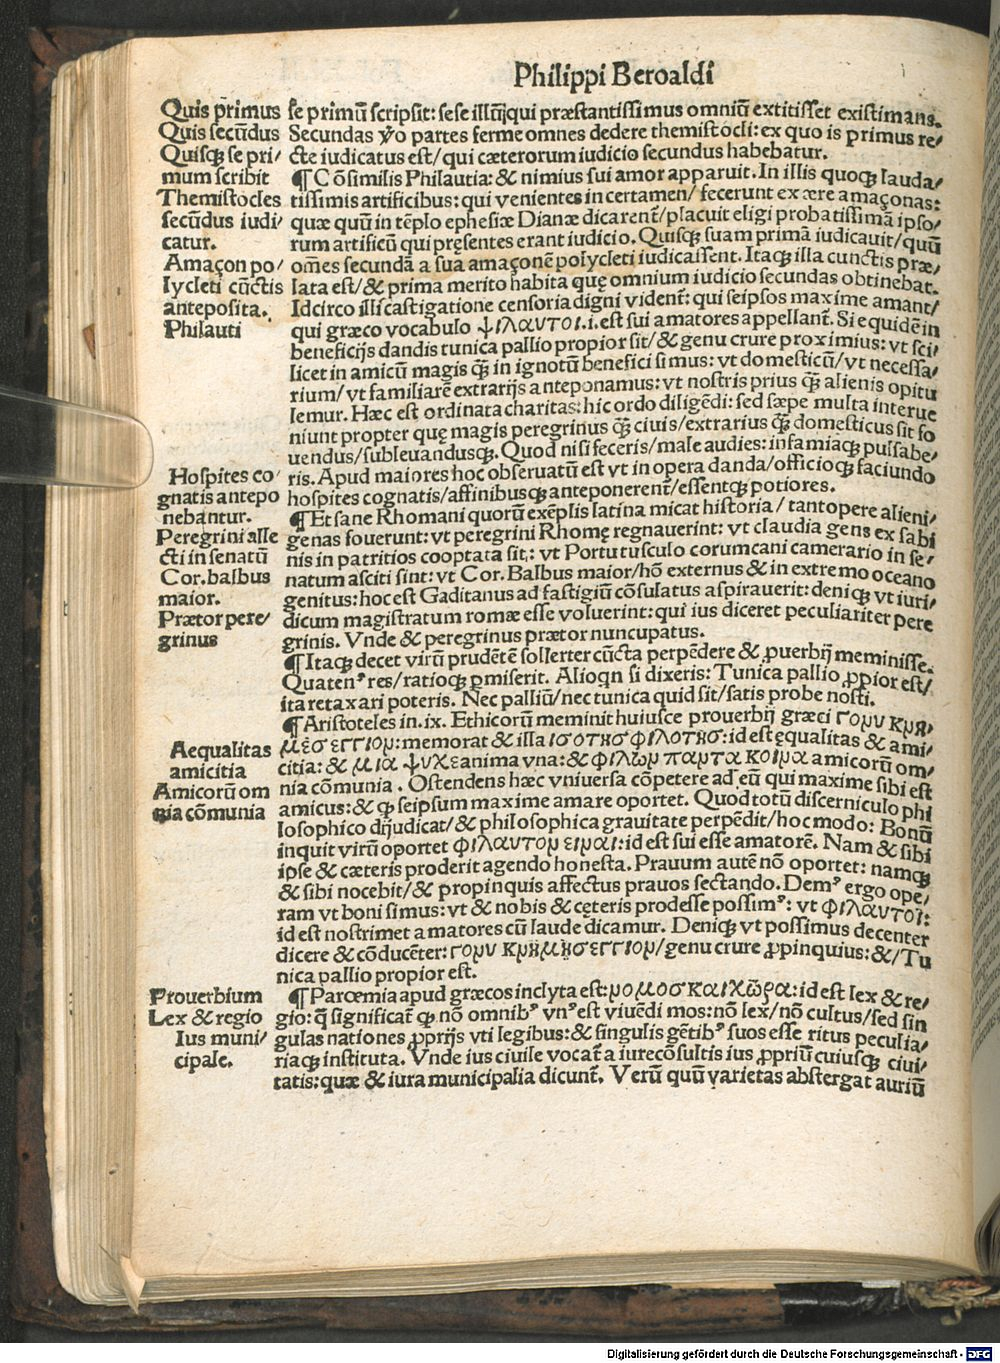 Philippi Beroaldi
Quis primus
Quis secūdus
Quisq̄ se pri/
mum scribit
Themistocles
secūdus iudi/
catur.
Amaçon po/
lycleti cūctis
anteposita.
Philauti
se primū scripsit: sese illūq̄ qui præstantissimus omniū extitisset existimans.
Secundas v̊o partes ferme omnes dedere themistocli: ex quo is primus re/
cte iudicatus est/ qui cæterorum iudicio secundus habebatur.
¶ Cōsimilis Philautia: & nimius sui amor apparuit. In illis quoq̄ lauda/
tissimis artificibus: qui venientes in certamen/ fecerunt ex ære amaçonas:
quæ quū in tēplo ephesiæ Dianæ dicarent̄/ placuit eligi probatissimā ipso/
rum artificū qui pręsentes erant iudicio. Quisq̄ suam primā iudicauit/ quū
om̄es secundā a sua amaçonē polycleti iudicassent. Itaq̄ illa cunctis præ/
lata est/ & prima merito habita quę omnium iudicio secundas obtinebat.
Idcirco illi castigatione censoria digni vident̄: qui seipsos maxime amant/
qui græco vocabulo ψιλαυτοι .i. est sui amatores appellant̄. Si equidē in
beneficijs dandis tunica pallio propior sit/ & genu crure proximius: vt sci/
licet in amicū magis q̄̄ in ignotū benefici simus: vt domesticū/ vt necessa/
rium/ vt familiarē extrarijs anteponamus: vt nostris prius q̄̄ alienis opitu
lemur. Hæc est ordinata charitas: hic ordo diligēdi: sed sæpe multa interue
niunt propter quę magis peregrinus q̄̄ ciuis/ extrarius q̄̄ domesticus sit fo
uendus/ subleuandusq̄. Quod nisi feceris/ male audies: infamiaq̄ pulsabe/
Hospites co/
gnatis antepo
nebantur.
Peregrini alle
cti in senatū
Cor. balbus
maior.
Prætor pere/
grinus
ris. Apud maiores hoc obseruatū est vt in opera danda/ officioq̄ faciundo
hospites cognatis/ affinibusq̄ anteponerent̄/ essentq̄ potiores.
¶ Et sane Rhomani quorū exēplis latina micat historia/ tantopere alieni/
genas fouerunt: vt peregrini Rhomę regnauerint: vt claudia gens ex sabi
nis in patritios cooptata sit: vt Portu tusculo corumcani camerario in se/
natum asciti sint: vt Cor. Balbus maior/ hō externus & in extremo oceano
genitus: hoc est Gaditanus ad fastigiū cōsulatus aspirauerit: deniq̄ vt iuri/
dicum magistratum romæ esse voluerint: qui ius diceret peculiariter pere
grinis. Vnde & peregrinus prætor nuncupatus.
¶ Itaq̄ decet virū prudētē sollerter cūcta perpēdere & ꝓuerbij meminisse.
Quatenꝰ res/ ratioq̄ ꝑmiserit. Alioqn si dixeris: Tunica pallio ꝓpior est/
ita retaxari poteris. Nec palliū/ nec tunica quid sit/ satis probe nosti.
¶ Aristoteles in .ix. Ethicorū meminit huiusce prouerbij græci γονυ κνη/
Aequalitas
amicitia
Amicorū om
nia cōmunia
μεσ εγγιον: memorat & illa ισοτησ φιλοτησ: id est ęqualitas & ami/
citia: & μια ψυχε anima vna: & φιλων παντα κοινα amicorū om/
nia cōmunia . Ostendens hæc vniuersa cōpetere ad eū qui maxime sibi est
amicus: & ꝙ seipsum maxime amare oportet. Quod totū discerniculo phi
losophico dijudicat/ & philosophica grauitate perpēdit/ hoc modo: Bonū
inquit virū oportet φιλαυτον ειναι: id est sui esse amatorē. Nam & sibi
ipse & cæteris proderit agendo honesta. Prauum autē nō oportet: namq̄
& sibi nocebit/ & propinquis affectus prauos sectando. Demꝰ ergo ope/
ram vt boni simus: vt & nobis & cęteris prodesse possimꝰ: vt φιλαυτοι:
id est nostrimet amatores cū laude dicamur. Deniq̄ vt possimus decenter
dicere & cōducēter: γονυ κνημησ εγγιον/ genu crure ꝓpinquius: &/ Tu
nica pallio propior est.
Prouerbium
Lex & regio
Ius muni/
cipale.
¶ Parœmia apud græcos inclyta est: νομοσ και χωρα: id est lex & re/
gio: q̄ significat̄ ꝙ nō omnibꝰ vnꝰ est viuēdi mos: nō lex/ nō cultus/ sed sin
gulas nationes ꝓprijs vti legibus: & singulis gētibꝰ suos esse ritus peculia/
riaq̄ instituta. Vnde ius ciuile vocat̄ a iurecōsultis ius ꝓpriū cuiusq̄ ciui/
tatis: quæ & iura municipalia dicunt̄. Verū quū varietas abstergat auriū
Digitalisierung gefördert durch die Deutsche Forschungsgemeinschaft - DFG